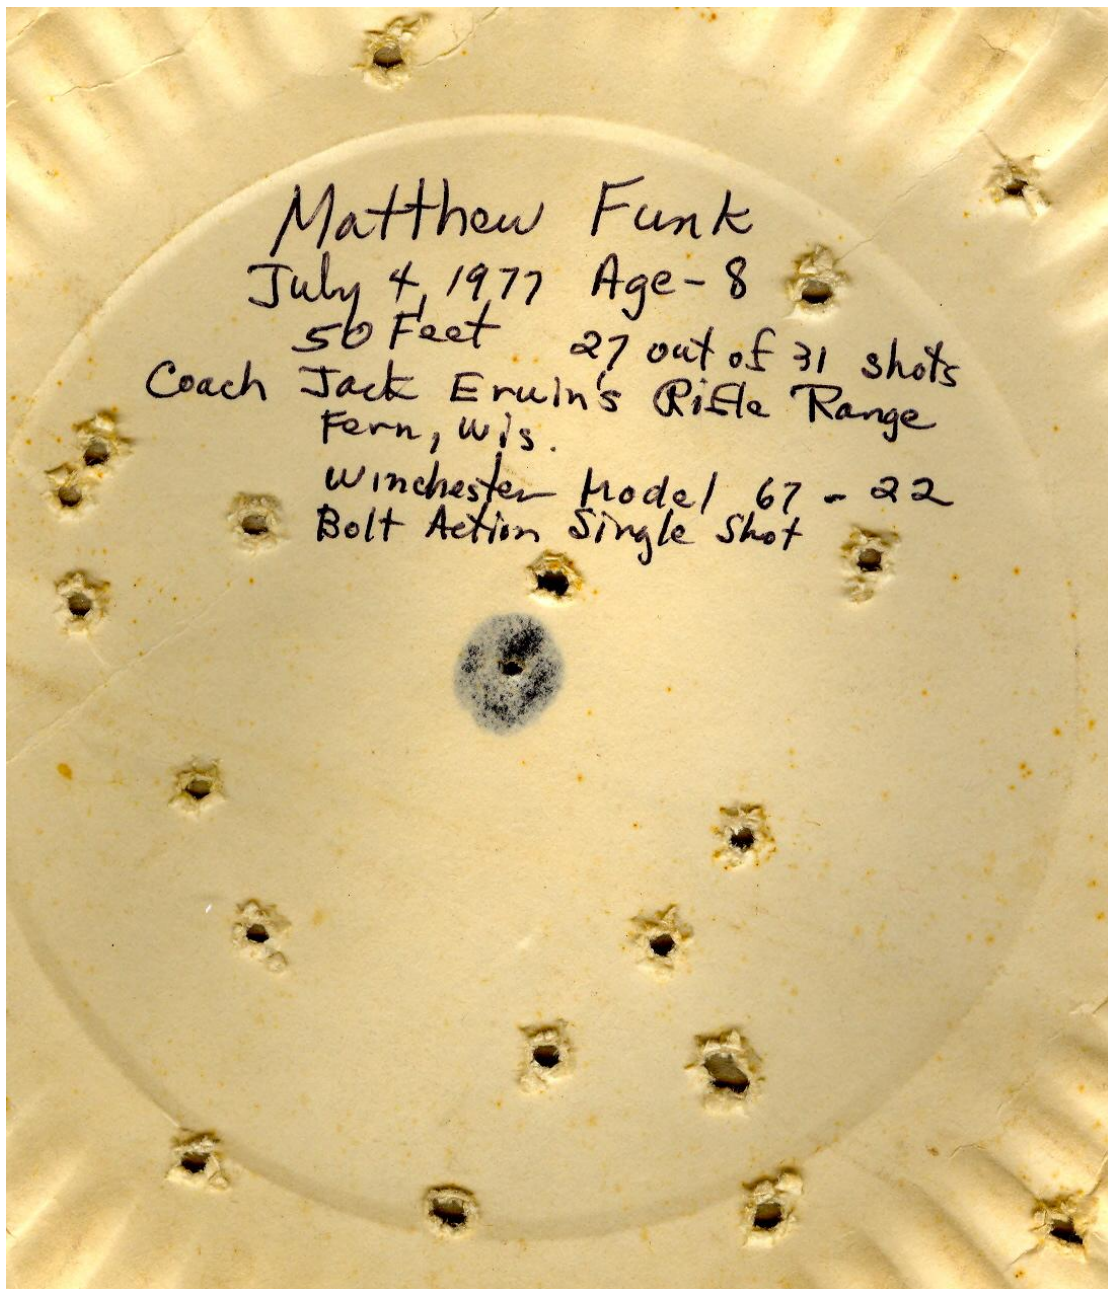 Matthew Funk
July 4, 1977 Age - 8
50 Feet 27 out of 31 shots
Coach Jack Erwin's Rifle Range
Fern, Wis.
Winchester Model 67 - 22
Bolt Action Single Shot